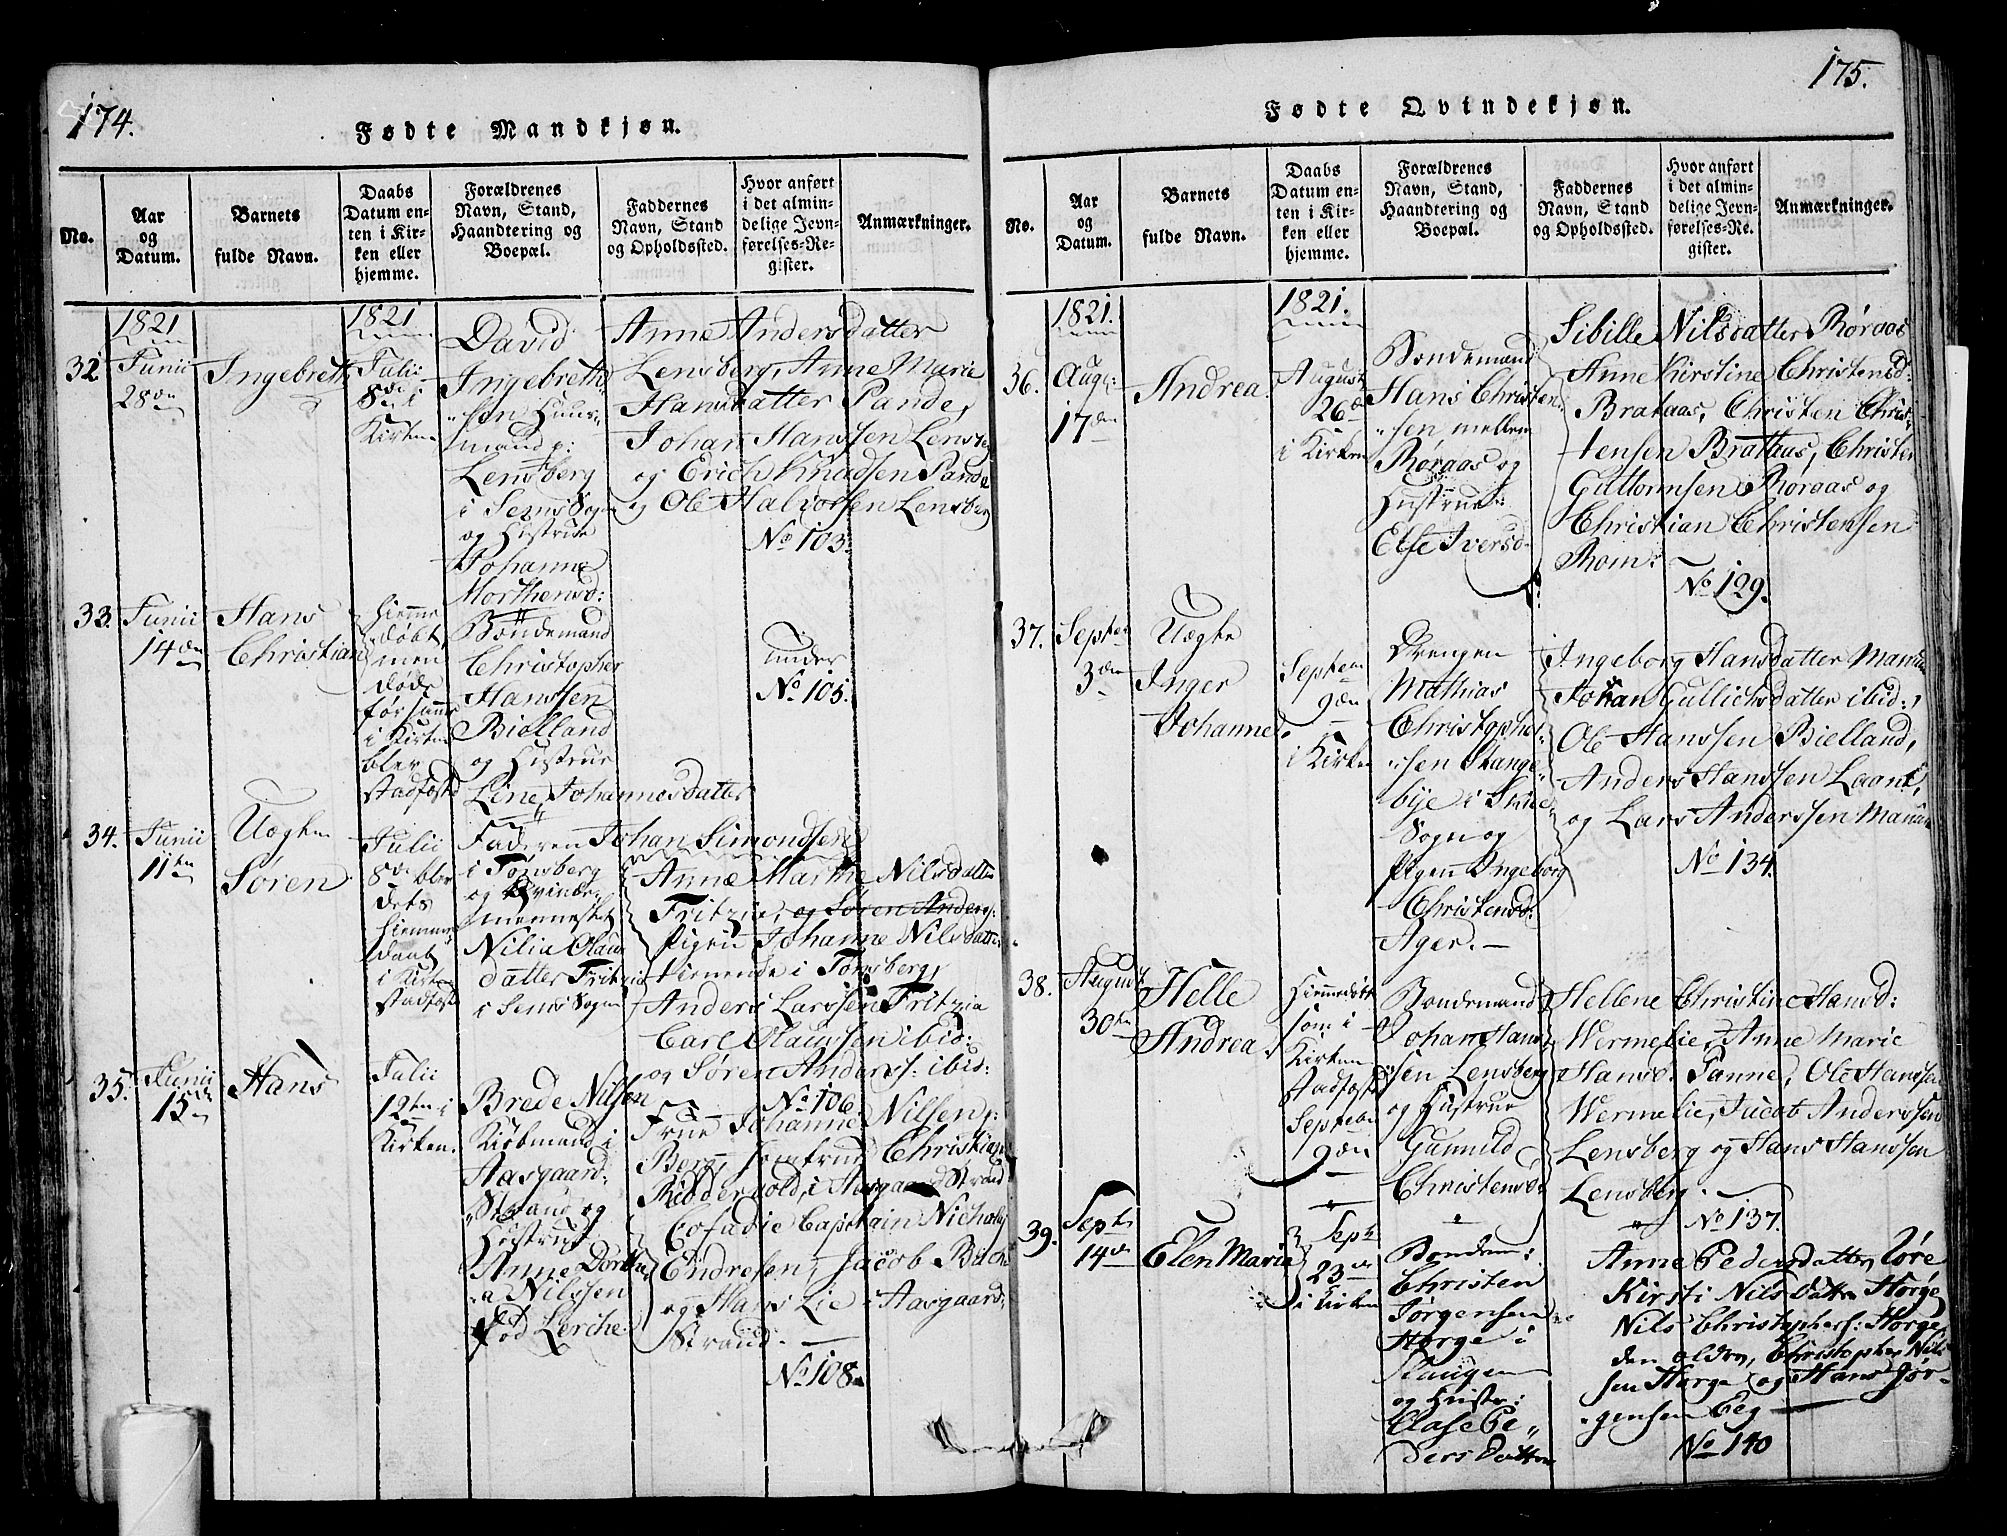 174.
Fødte Mandkjøn.
No.
Aar
og
Datum.
Barnets
fulde Navn.
Daabs
Datum en-
ten i Kir-
ken eller
hjemme.
Forældrenes
Navn, Stand,
Haandtering og
Boepæl.
Faddernes
Navn, Stand
og Opholdssted.
Hvor anført
i det almin-
delige Jevn-
førelses-Re-
gister.
Anmærkninger.
32
1821
Junii
28de
Ingebreth
1821
Julii
8de i
Kirken
David
Ingebreth
"sen Huus"
mand p:
Lensberg
i Sems Sogn
og Hustrue
Johanne
Morthensd:
Anne Andersdatter
Lensberg, Anne Marie
Hansdatter Pande,
Johan Hanssen Lensberg
og Erich Knudsen Pande
og Ole Halvorsen Lensberg
No 103.
33.
Junii
14de
Hans
Christian
hiemme
døbt,
men
Døde
før
i Kirken
blev
stadfæstet
Bondemand
Christopher
Hanssen
Biølland
og Hustrue
Line Johannesdatter
under
No 105.
34.
Junii
11te
Uægte
Søren
Julii
8de blev
dets
hiemme
daab
i Kirken
stadfæst
Faderen Johan Simondsen
i Tønsberg
og Qvinde-
mennesket
Nilia Olaus
datter Fritzia
i Sems Sogn
Anne Marthe Nilsdatter
Fritzia, og Søren Anders:
Pigen Johanne Nilsdatter
tienende i Tønsberg,
Anders Larssen Fritzia
Carl Olaussen ibid:
og Søren Anderss: ibid:
No 106.
35.
Junii
15de
Hans
Julii
12te i
Kirken.
Brede Nilsen
Kiøbmand i
Aasgaard-
"Strand og
Hustrue
Anne Dorthe
"a Nilssen
fød Lerche
Frue Johanne Nilsen p:
Berg, Jomfrue Christiane
Riddervold, i Aasgaardstrand
Cofadie Captain Nicholaj
Endresen, Jacob Bache
og Hans Lie i Aasgaard-
Strand.
No 108.
175.
Fødte Qvindekjøn.
No.
Aar
og
Datum.
Barnets
fulde Navn.
Daabs
Datum en-
ten i Kir-
ken eller
hjemme.
Forældrenes
Navn, Stand,
Haandtering og
Boepæl.
Faddernes
Navn, Stand
og Opholdssted.
Hvor anført
i det almin-
delige Jevn-
førelses-Re-
gister.
Anmærkninger.
36.
1821.
Aug:
17de
Andrea.
1821.
August
26de
i Kirken
Bondemand
Hans Christen
"sen mellem
Røraas og
Hustrue:
Else Iversd.
Sibille Nilsdatter Røraas
Anne Kirstine Christensd:
Brataas, Christen Chris-
tensen Brataas, Christen
Guttormsen Røraas og
Christian Christensen
Rom:
No 129.
37.
Septem
3den
Uægte
Inger
Johanne.
Septem
9de
i Kirken
Drengen
Mathias
Christopher
"sen Stange"
bye i Slue
Sogn og
Pigen Ingeborg
Christensd:
Ager.
Ingeborg Hansdatter
Johan Gullichsdatter ibid:,
Ole Hanssen Bielland,
Anders Hanssen
og Lars Anderssen
No 134.
38.
August
30te
Helle
Andrea.
Hiemmedøbt
som i
Kirken
Stadfæstet
Septebr
9de
Bondemand
Johan Hans
sen Lensberg
og Hustrue
Gunnild
Christensd:
Hellene Christine Hansd:
Wermelie, Anne Marie
Hansd: Panne, Ole Hanssen
Wermelie, Jacob Anderssen
Lensberg og Hans Hanssen
Lensberg.
No 137.
39.
Septr
14de
Elen Maria
Septr
23de
i Kirken
Bondem:
Christen
Jørgensen
Horge i
Slaugen
og Hustr:
Clase Pe"
ders Datter
Anne Pedersdatter
Kirsti Nils Datter Horge
Nils Christophers: Horge,
den ældre, Christopher Nil
sen Horge og Hans Jør-
"gensen Eeg
No 140